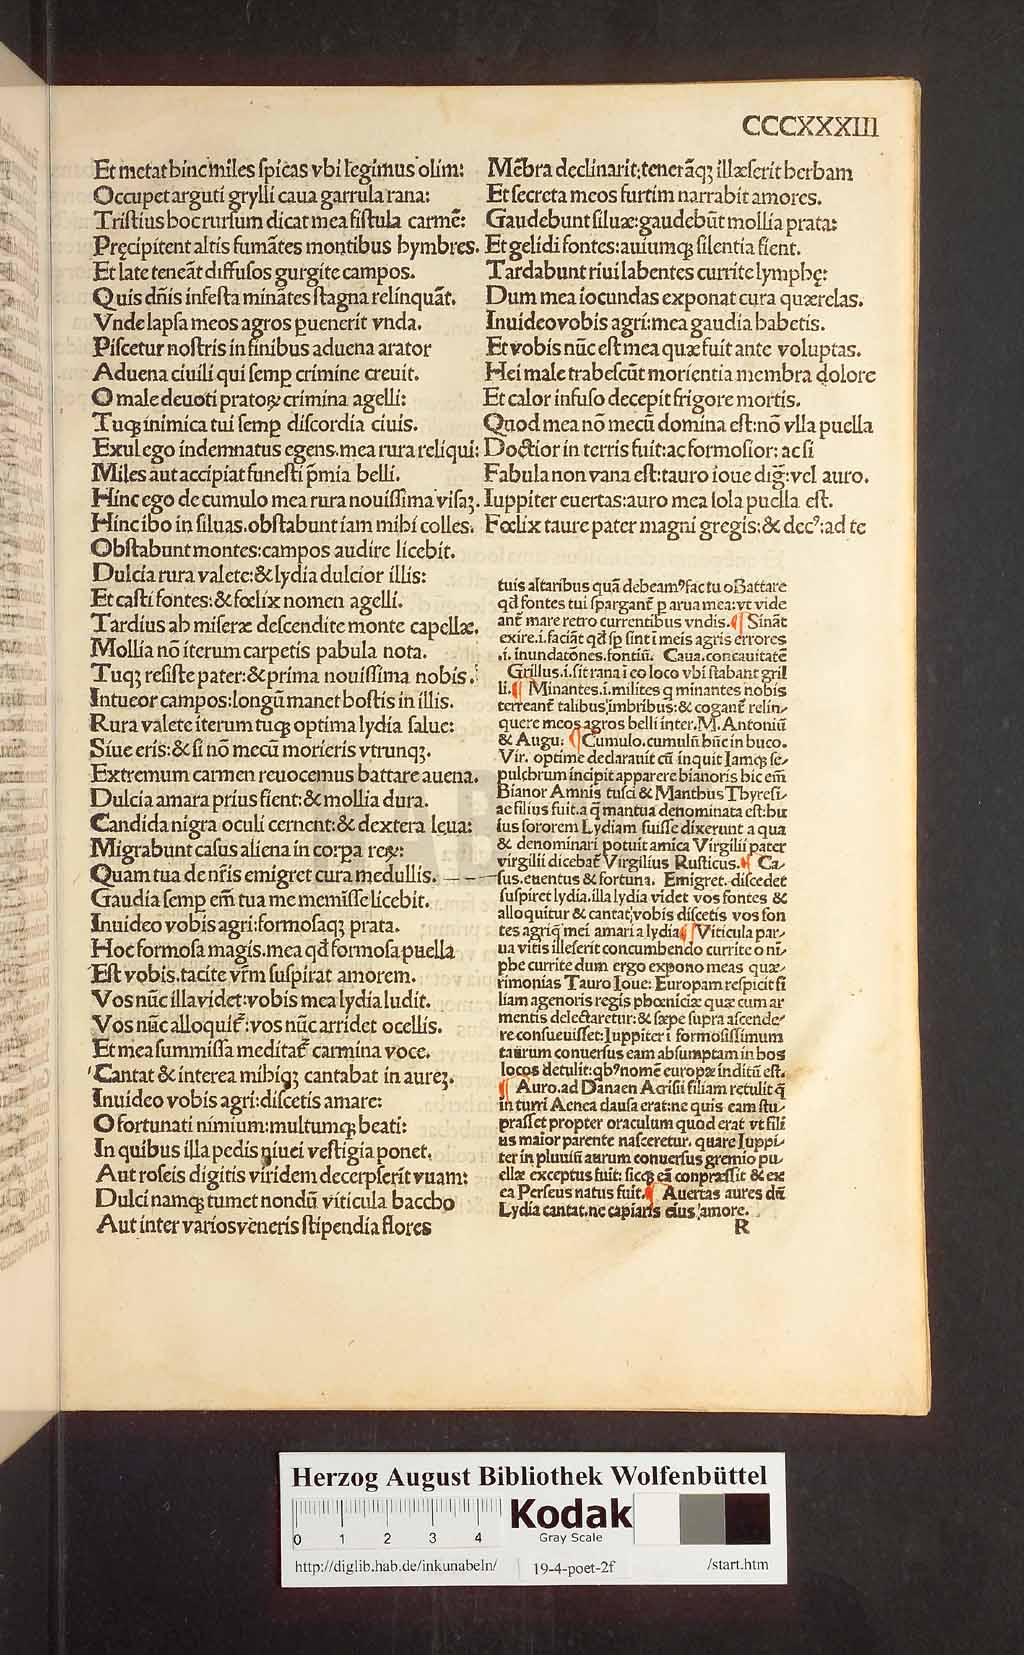 CCCXXXIII
Et metat hinc miles spicas vbi legimus olim:
Occupet arguti grylli caua garrula rana:
Tristius hoc rursum dicat mea fistula carmē:
Pręcipitent altis fumātes montibus hymbres.
Et late teneāt diffusos gurgite campos.
Quis dn̄is infesta minātes stagna relinquāt.
Vnde lapsa meos agros ꝑuenerit vnda.
Piscetur nostris in finibus aduena arator
Aduena ciuili qui semꝑ crimine creuit.
O male deuoti pratoꝝ crimina agelli:
Tuqꝫ inimica tui semꝑ discordia ciuis.
Exul ego indemnatus egens. mea rura reliqui:
Miles aut accipiat funesti p̄mia belli.
Hinc ego de cumulo mea rura nouissima visaꝫ.
Hinc ibo in siluas. obstabunt iam mihi colles.
Obstabunt montes: campos audire licebit.
Dulcia rura valete: & lydia dulcior illis:
Et casti fontes: & fœlix nomen agelli.
Tardius ah miseræ descendite monte capellæ.
Mollia nō iterum carpetis pabula nota.
Tuqꝫ resiste pater: & prima nouissima nobis.
Intueor campos: longū manet hostis in illis.
Rura valete iterum tuqꝫ optima lydia salue:
Siue eris: & si nō mecū morieris vtrunqꝫ.
Extremum carmen reuocemus battare auena.
Dulcia amara prius fient: & mollia dura.
Candida nigra oculi cernent: & dextera leua:
Migrabunt casus aliena in corpa reꝝ:
Quam tua de nr̄is emigret cura medullis.
Gaudia semꝑ em̄ tua me meminisse licebit.
Inuideo vobis agri: formosaqꝫ prata.
Hoc formosa magis. mea qd̄ formosa puella
Est vobis. tacite vr̄m suspirat amorem.
Vos nūc illa videt: vobis mea lydia ludit.
Vos nūc alloquit᷑: vos nūc arridet ocellis.
Et mea summissa meditat᷑ carmina voce.
Cantat & interea mihiqꝫ cantabat in aureꝫ.
Inuideo vobis agri: discetis amare:
O fortunati nimium: multumqꝫ beati:
In quibus illa pedis niuei vestigia ponet.
Aut roseis digitis viridem decerpserit vuam:
Dulci namqꝫ tumet nondū viticula baccho
Aut inter varios veneris stipendia flores
Mēbra declinarit: tenerāqꝫ illæserit herbam
Et secreta meos furtim narrabit amores.
Gaudebunt siluæ: gaudebūt mollia prata:
Et gelidi fontes: auiumqꝫ silentia fient.
Tardabunt riui labentes currite lymphę:
Dum mea iocundas exponat cura quærelas.
Inuideo vobis agri: mea gaudia habetis.
Et vobis nūc est mea quæ fuit ante voluptas.
Hei male trabescūt morientia membra dolore
Et calor infuso decepit frigore mortis.
Quod mea nō mecū domina est: nō vlla puella
Doctior in terris fuit: ac formosior: ac si
Fabula non vana est: tauro ioue dig̃: vel auro.
Iuppiter euertas: auro mea sola puella est.
Fœlix taure pater magni gregis: & decꝰ: ad te
tuis altaribus quā debeamꝰ factu o Battare
qd̄ fontes tui spargant᷑ ꝑ arua mea: vt vide
ant᷑ mare retro currentibus vndis. ¶ Sināt
exire .i. faciāt qd̄ sꝑ sint ī meis agris errores
.i. inundatōnes. fontiū. Caua. concauitatē
Grillus .i. sit rana ī eo loco vbi stabant gril
li. ¶ Minantes .i. milites q minantes nobis
terreant᷑ talibus imbribus: & cogant᷑ relin/
quere meos agros belli inter. M. Antoniū
& Augu. ¶ Cumulo. cumulū hūc in buco.
Vir. optime declarauit cū inquit Iamqꝫ se/
pulchrum incipit apparere bianoris hic em̄
Bianor Amnis tusci & Manthus Thyresi/
ac filius fuit. a q̄ mantua denominata est: hu
ius sororem Lydiam fuisse dixerunt a qua
& denominari potuit amica Virgilii pater
virgilii dicebat᷑ Virgilius Rusticus. ¶ Ca/
sus. euentus & fortuna. Emigret. discedet
suspiret lydia. illa lydia videt vos fontes &
alloquitur & cantat. vobis discetis vos fon
tes agriq̄ mei amari a lydia ¶ Viticula par/
ua vitis illeserit concumbendo currite o nī/
phe currite dum ergo expono meas quæ/
rimonias Tauro Ioue: Europam respicit fi
liam agenoris regis phœniciæ quæ cum ar
mentis delectaretur: & sæpe supra ascende/
re consueuisset: Iuppiter ī formosissimum
taurum conuersus eam absumptam in hos
locos detulit: qbꝰ nomē europæ inditū est.
¶ Auro. ad Danaen Acrisii filiam retulit q̄
in turri Aenea clausa erat: ne quis eam stu/
prasset propter oraculum quod erat vt fili
us maior parente nasceretur. quare Iuppi/
ter in pluuiū aurum conuersus gremio pu/
ellæ exceptus fuit: sicqꝫ eā conpræssit & ex
ea Perseus natus fuit. ¶ Auertas aures dū
Lydia cantat. ne capiaris eius amore.
R
Herzog August Bibliothek Wolfenbüttel
0 1 2 3 4
Kodak
Gray Scale
http://diglib.hab.de/inkunabeln/ 19-4-poet-2f /start.htm